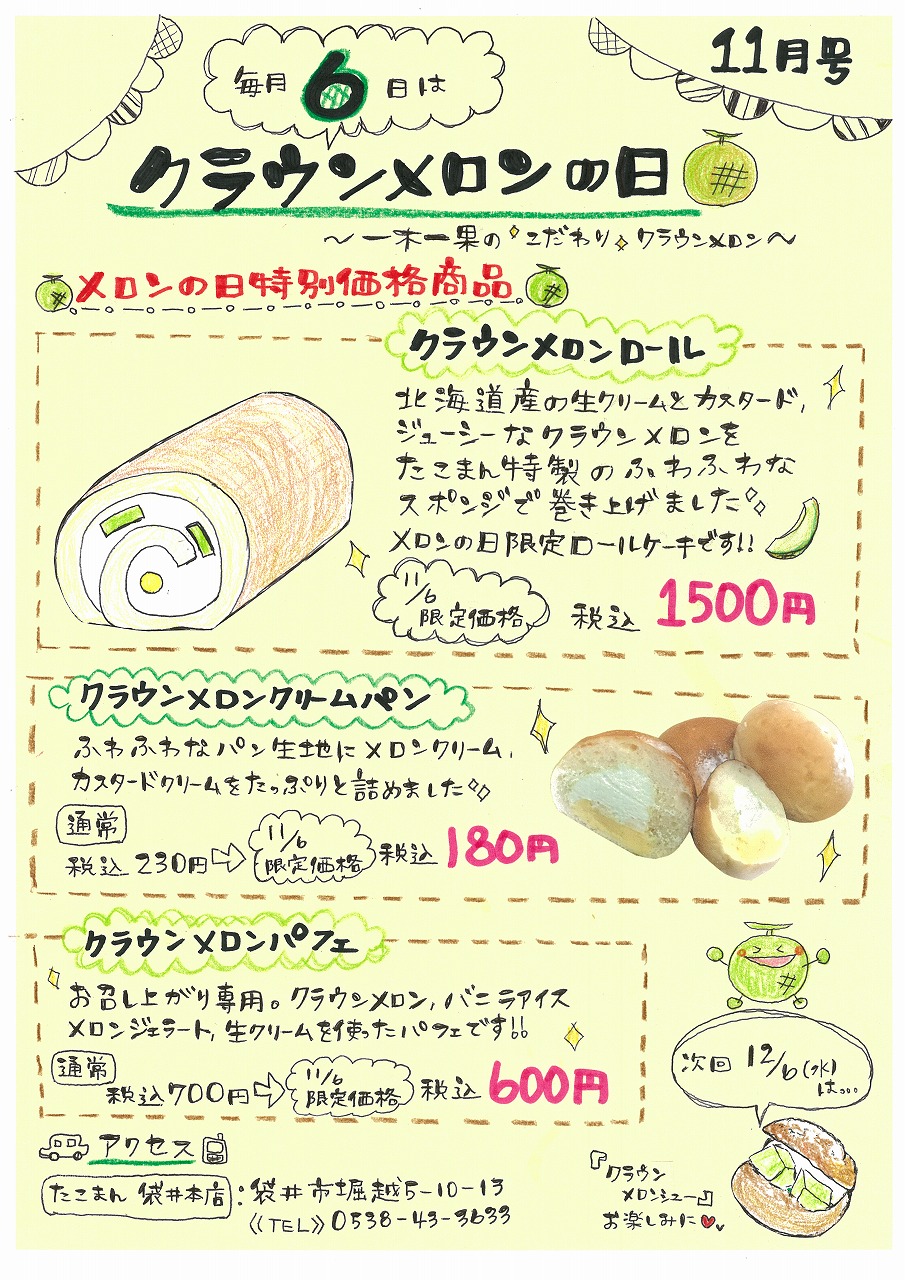 11月号
毎月6日は
クラウンメロンの日
～一木一果のこだわりクラウンメロン～
メロンの日特別価格商品
クラウンメロンロール
北海道産の生クリームとカスタード,
ジューシーなクラウンメロンを
たこまん特製のふわふわな
スポンジで巻き上げました
メロンの日限定ロールケーキです!!
11/6 限定価格 税込 1500円
クラウンメロンクリームパン
ふわふわなパン生地にメロンクリーム,
カスタードクリームをたっぷりと詰めました
通常
税込230円 11/6 限定価格 税込 180円
クラウンメロンパフェ
お召し上がり専用。クラウンメロン,バニラアイス
メロンジェラート,生クリームを使ったパフェです!!
通常
税込700円 11/6 限定価格 税込 600円
次回 12/6(水)
は...
『クラウン
メロンシュー』
お楽しみに
アクセス
たこまん 袋井本店:袋井市堀越5-10-13
《TEL》0538-43-3633